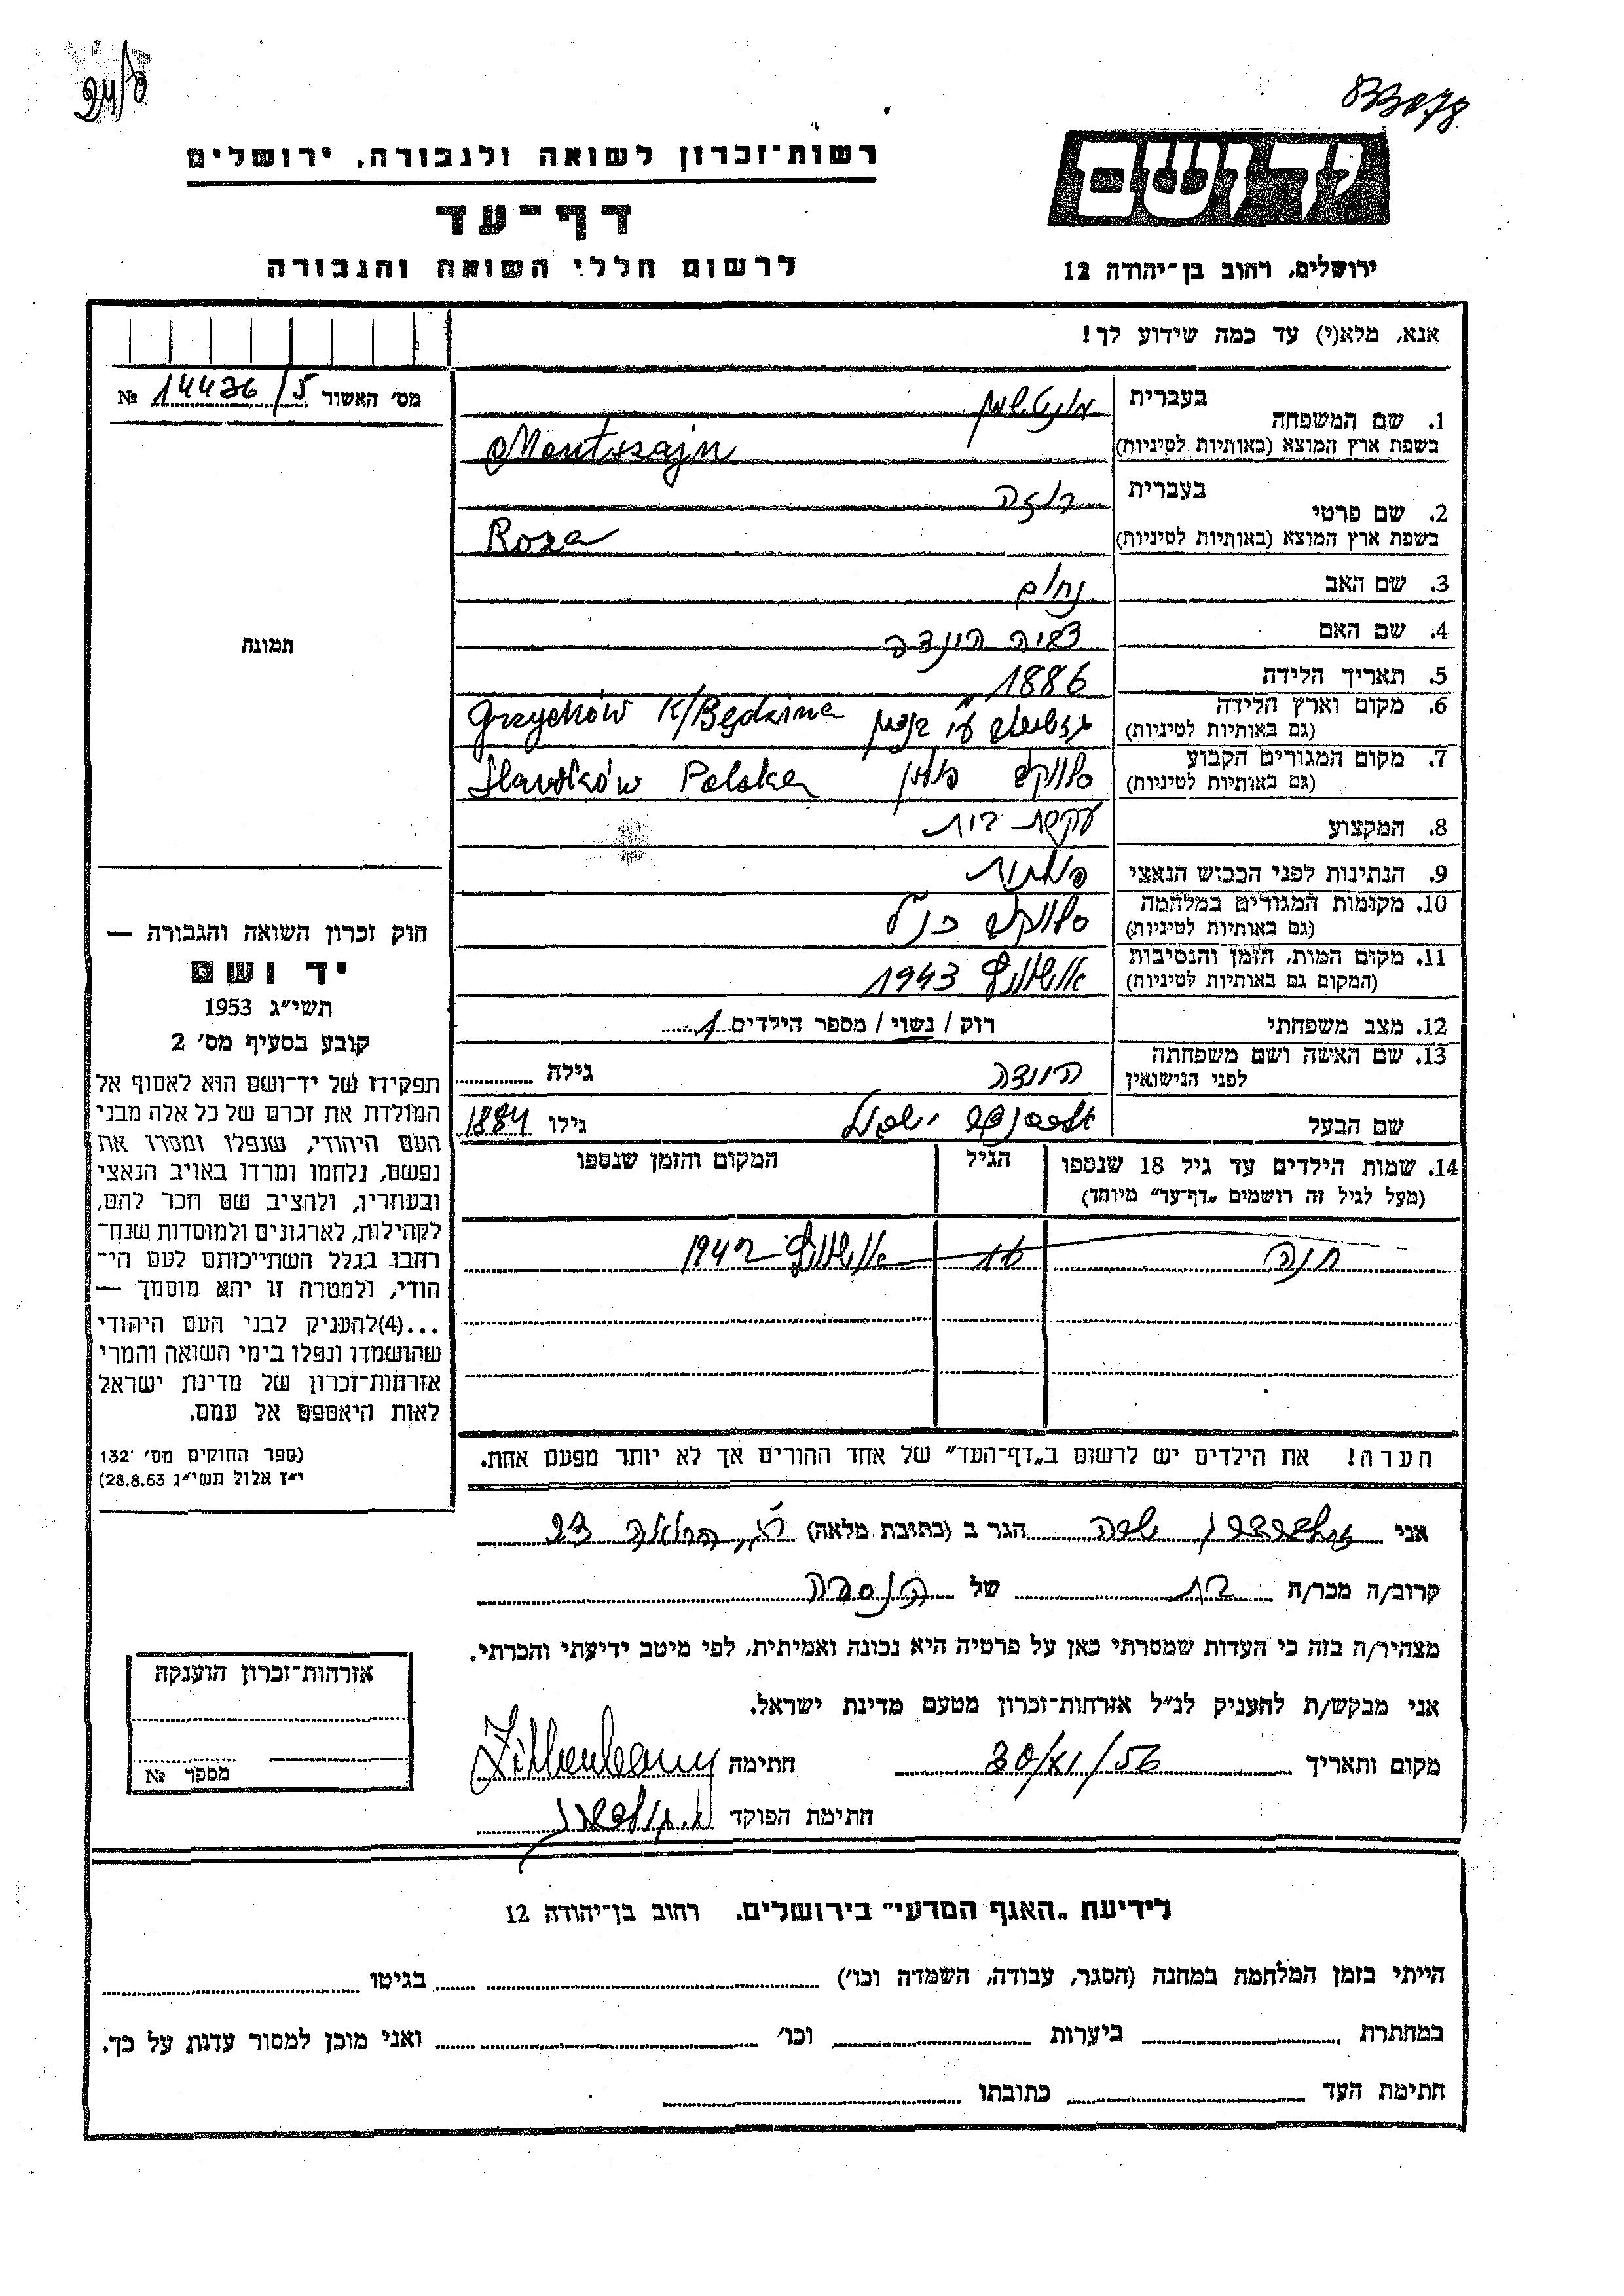 83078
רשות־זכרון לשואה ולגבורה, ירושלים
יד ושם
דף־עד
לרשום חללי השואה והגבורה
ירושלים, רחוב בן־יהודה 12
אנא, מלא(י) עד כמה שידוע לך!
מס׳ האשור 14436/5 №
1. שם המשפחה
בעברית
בשפת ארץ המוצא (באותיות לטיניות) Montszajn
2. שם פרטי
בעברית רוזה
בשפת ארץ המוצא (באותיות לטיניות) Roza
3. שם האב נחום
4. שם האם הינדה
5. תאריך הלידה 1886
6. מקום וארץ הלידה Grzychów K/Będzina
(גם באותיות לטיניות)
7. מקום המגורים הקבוע סלווקוב פולין Sławków Polska
(גם באותיות לטיניות)
8. המקצוע עקרת בית
9. הנתינות לפני הכבוש הנאצי פולנית
10. מקומות המגורים במלחמה סלווקוב כנ״ל
(גם באותיות לטיניות)
11. מקום המות, הזמן והנסיבות אושוויץ 1943
(המקום גם באותיות לטיניות)
12. מצב משפחתי רוק / נשוי / מספר הילדים 1
13. שם האשה ושם משפחתה
לפני הנישואין גילה
שם הבעל גילו 1884
14. שמות הילדים עד גיל 18 שנספו הגיל המקום והזמן שנספו
(מעל לגיל זה רושמים „דף־עד״ מיוחד)
חנה אושוויץ 1942
הערה! את הילדים יש לרשום ב„דף־העד״ של אחד ההורים אך לא יותר מפעם אחת.
תמונה
חוק זכרון השואה והגבורה —
יד ושם
תשי״ג 1953
קובע בסעיף מס׳ 2
תפקידו של יד־ושם הוא לאסוף אל
המולדת את זכרם של כל אלה מבני
העם היהודי, שנפלו ומסרו את
נפשם, נלחמו ומרדו באויב הנאצי
ובעוזריו, ולהציב שם וזכר להם,
לקהילות, לארגונים ולמוסדות שנח־
רבו בגלל השתייכותם לעם הי־
הודי, ולמטרה זו יהא מוסמך —
...(4)להעניק לבני העם היהודי
שהושמדו ונפלו בימי השואה והמרי
אזרחות־זכרון של מדינת ישראל
לאות היאספם אל עמם.
(ספר החוקים מס׳ 132
י״ז אלול תשי״ג 28.8.53)
אני זילברברג שרה הגר ב (כתובת מלאה) 23
קרוב/ה מכר/ה בת של הנספה
מצהיר/ה בזה כי העדות שמסרתי כאן על פרטיה היא נכונה ואמיתית, לפי מיטב ידיעתי והכרתי.
אני מבקש/ת להעניק לנ״ל אזרחות־זכרון מטעם מדינת ישראל.
מקום ותאריך 20/XI/56 חתימה
חתימת הפוקד
אזרחות־זכרון הוענקה
מספר №
לידיעת „האגף המדעי״ בירושלים. רחוב בן־יהודה 12
הייתי בזמן המלחמה במחנה (הסגר, עבודה, השמדה וכו׳) בגיטו
במחתרת ביערות וכו׳ ואני מוכן למסור עדות על כך.
חתימת העד כתובתו